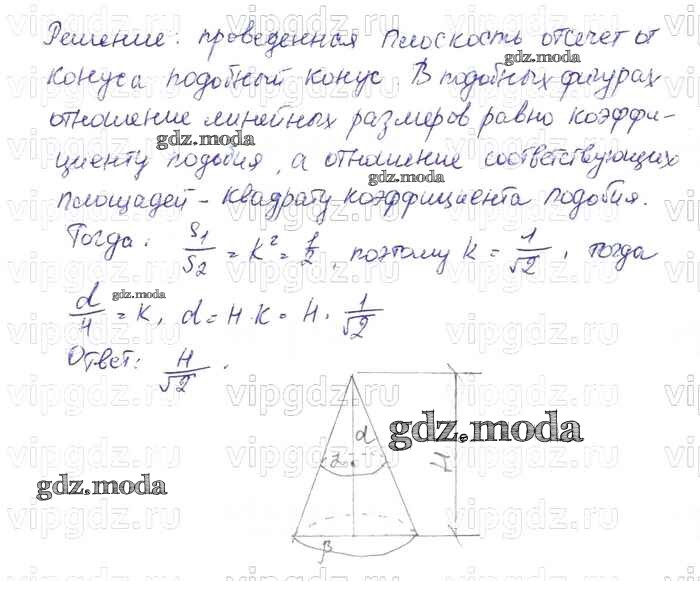 Решение: проведенная плоскость отсечет от
конуса подобный конус. В подобных фигурах
отношение линейных размеров равно коэффи-
циенту подобия, а отношение соответствующих
площадей - квадрату коэффициента подобия.
Тогда: S1/S2 = K² = 1/2, поэтому K = 1/√2, тогда
d/H = K, d = H·K = H·1/√2
Ответ: H/√2.
d
H
α
β
gdz.moda
gdz.moda
gdz.moda
gdz.moda
gdz.moda
gdz.moda
vipgdz.ru